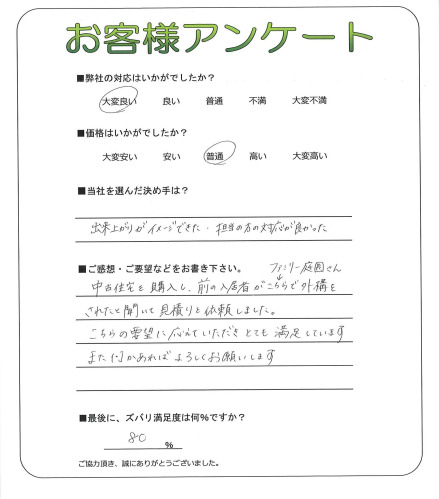 お客様アンケート
■弊社の対応はいかがでしたか?
大変良い 良い 普通 不満 大変不満
■価格はいかがでしたか?
大変安い 安い 普通 高い 大変高い
■当社を選んだ決め手は?
出来上がりがイメージできた・担当の方の対応が良かった
■ご感想・ご要望などをお書き下さい。
ファミリー庭園さん
中古住宅を購入し、前の入居者がこちらで外構を
されたと聞いて見積りを依頼しました。
こちらの要望に応えていただきとても満足しています
また何かあればよろしくお願いします
■最後に、ズバリ満足度は何%ですか?
80 %
ご協力頂き、誠にありがとうございました。